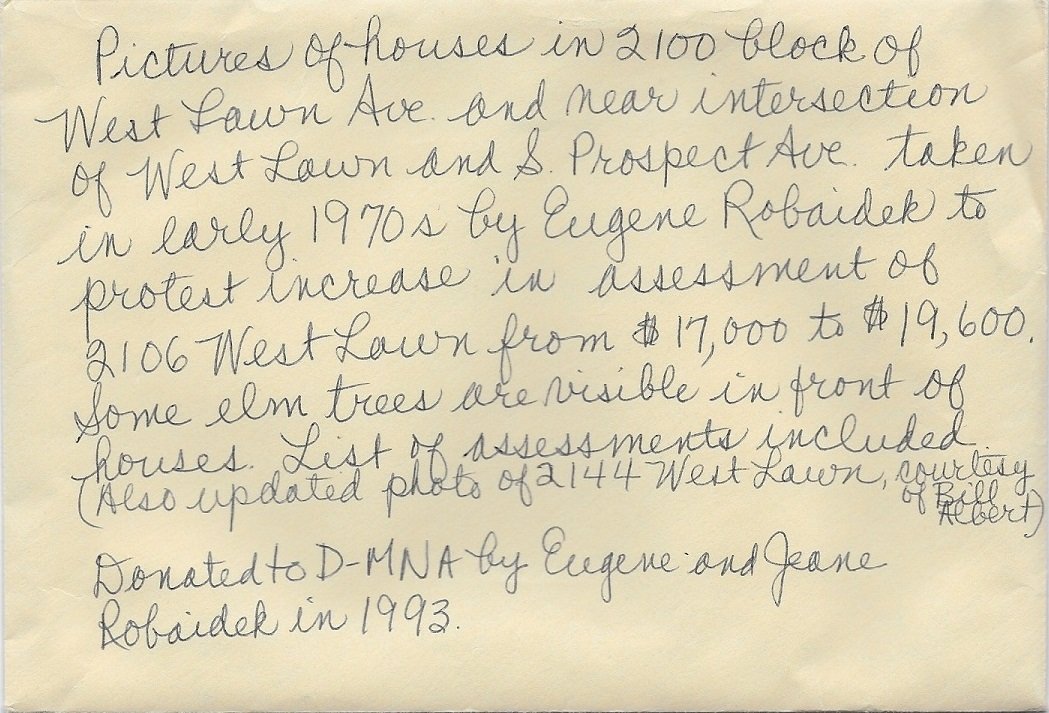 Pictures of houses in 2100 block of
West Lawn Ave. and near intersection
of West Lawn and S. Prospect Ave. taken
in early 1970s by Eugene Robaidek to
protest increase in assessment of
2106 West Lawn from $17,000 to $19,600.
Some elm trees are visible in front of
houses. List of assessments included.
(Also updated photo of 2144 West Lawn, courtesy
of Bill
Albert)
Donated to D-MNA by Eugene and Jeane
Robaidek in 1993.